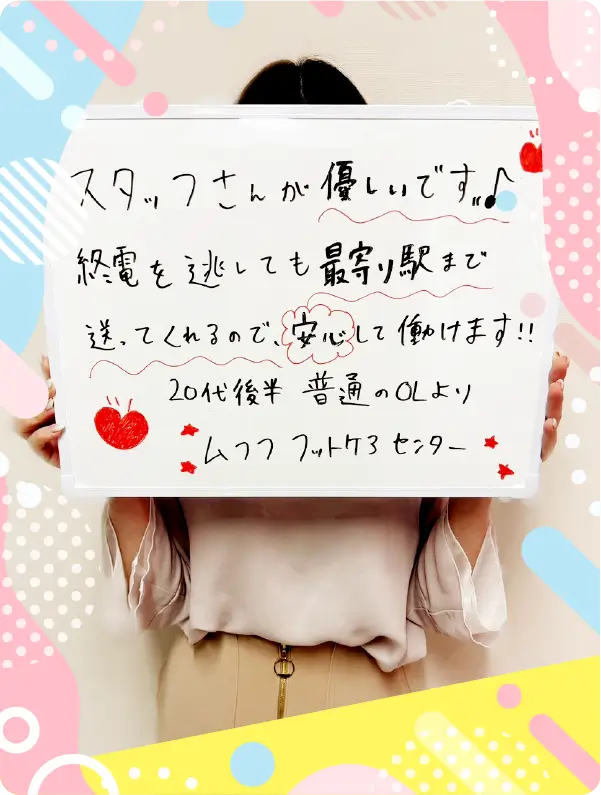 スタッフさんが優しいです♪
終電を逃しても最寄り駅まで
送ってくれるので、安心して働けます!!
20代後半 普通のOLより
ムフフ フットケろ センター